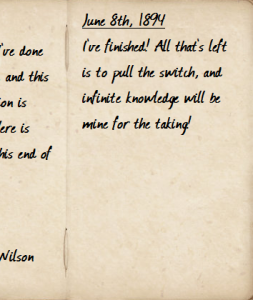 I've done
and this
is
here is
this end of
Wilson
June 8th, 1894
I've finished! All that's left
is to pull the switch, and
infinite knowledge will be
mine for the taking!